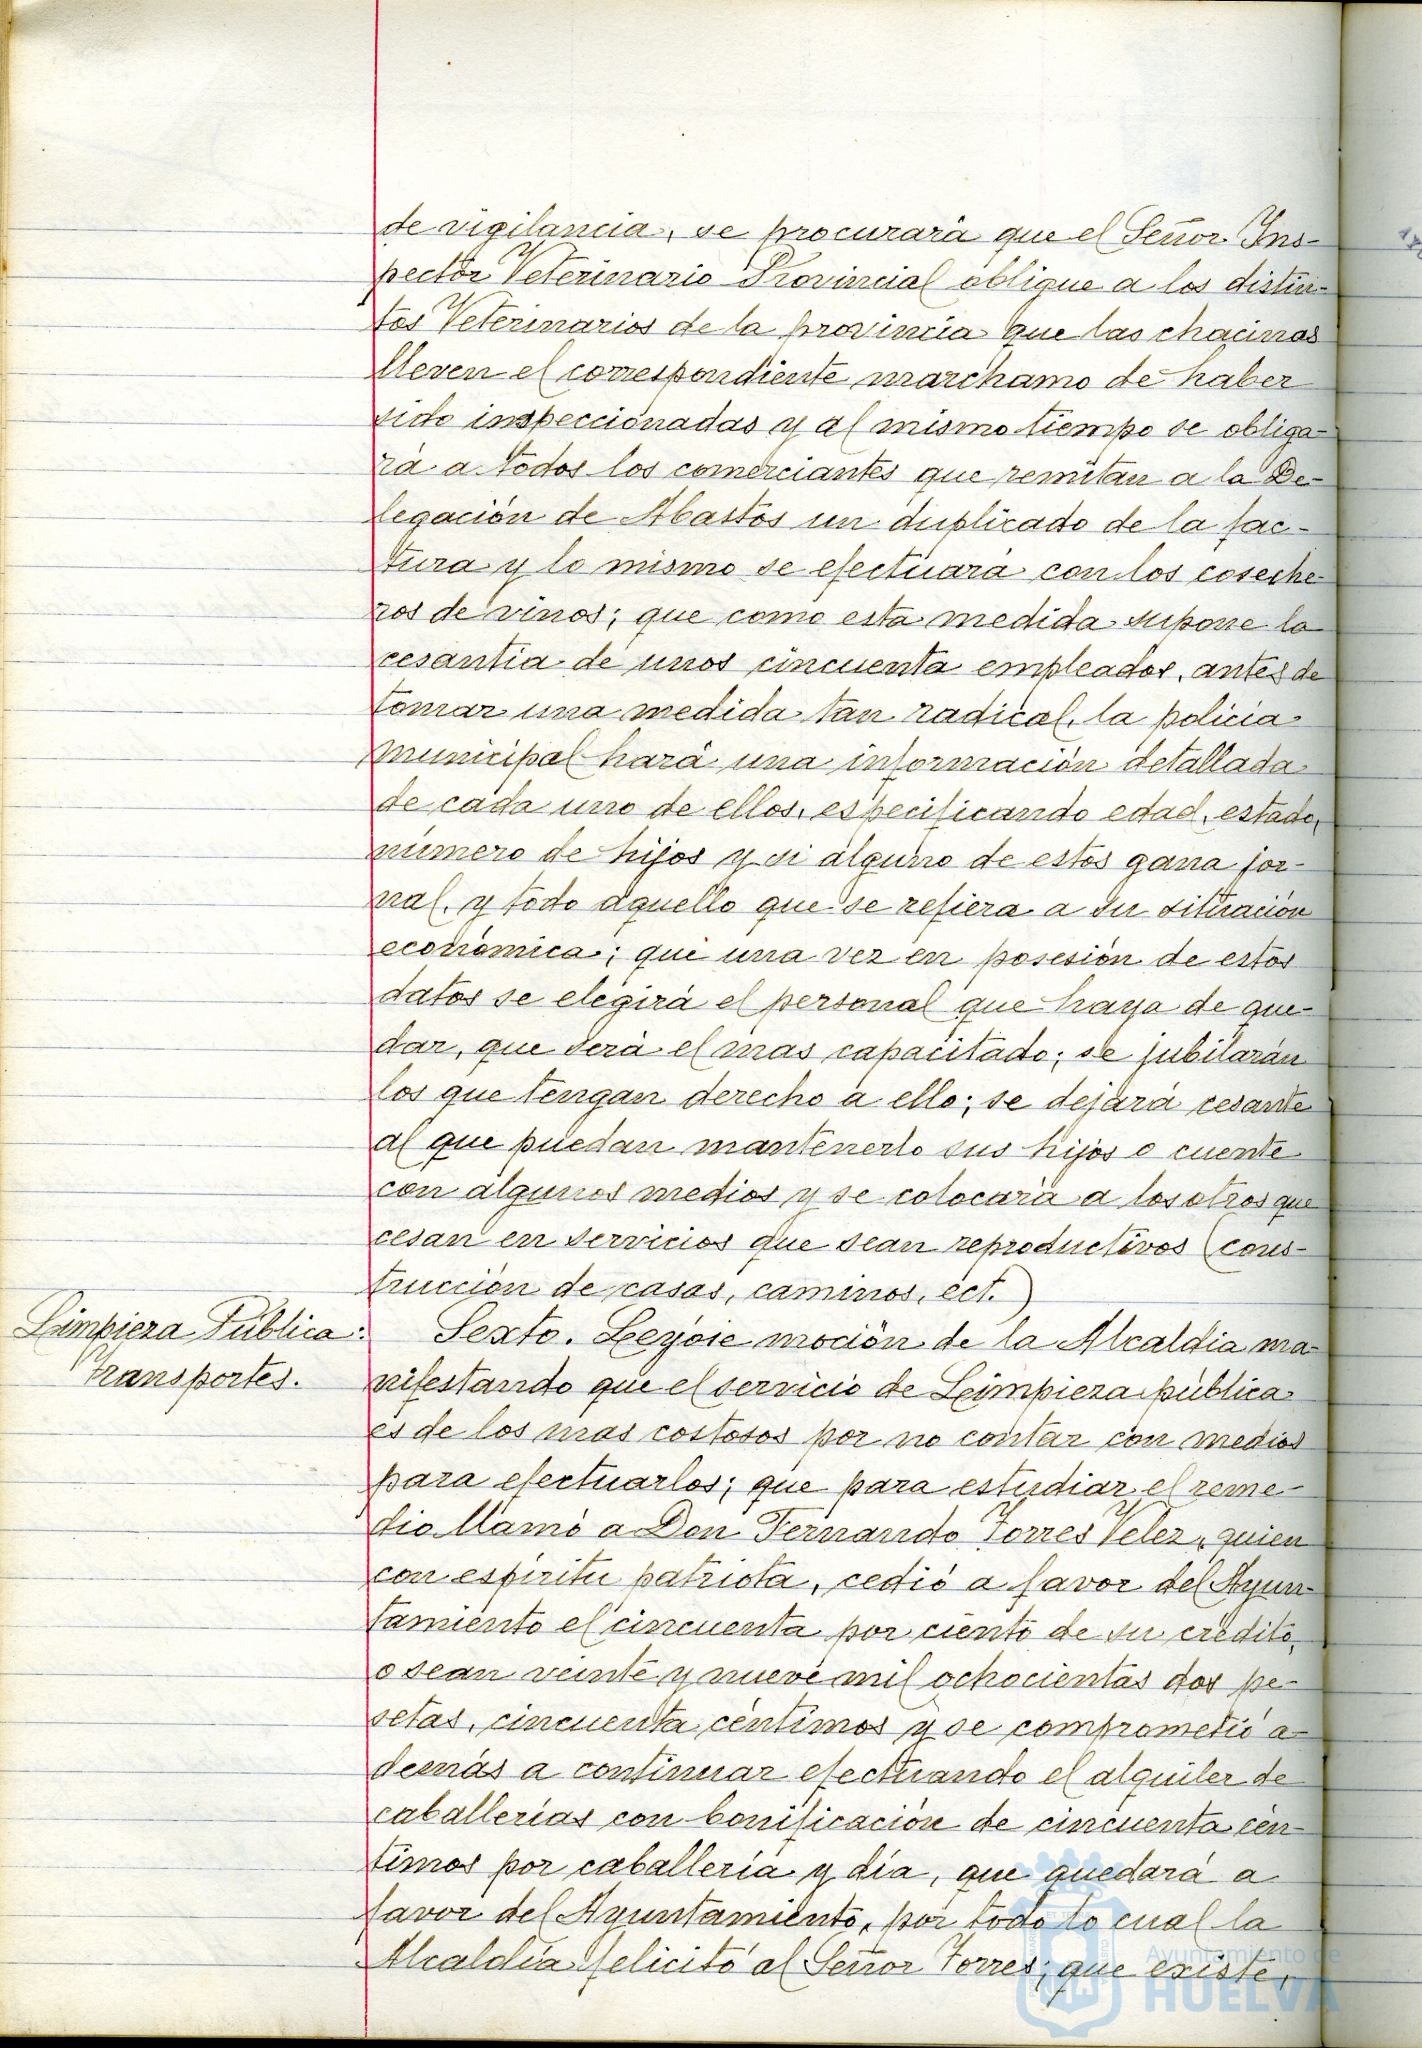 de vigilancia, se procurará que el Señor Ins-
pector Veterinario Provincial obligue a los distin-
tos Veterinarios de la provincia que las chacinas
lleven el correspondiente marchamo de haber
sido inspeccionadas y al mismo tiempo se obliga-
rá a todos los comerciantes que remitan a la De-
legación de Abastos un duplicado de la fac-
tura y lo mismo se efectuará con los coseche-
ros de vinos; que como esta medida supone la
cesantía de unos cincuenta empleados, antes de
tomar una medida tan radical, la policia
Municipal hará una información detallada
de cada uno de ellos, especificando edad, estado,
número de hijos y si alguno de estos gana jor-
nal, y todo aquello que se refiera a su situación
económica; que una vez en posesión de estos
datos se elegirá el personal que haya de que-
dar, que será el mas capacitado; se jubilarán
los que tengan derecho a ello; se dejará cesante
al que puedan mantenerlo sus hijos o cuente
con algunos medios y se colocará a los otros que
cesan en servicios que sean reproductivos (cons-
trucción de casas, caminos, ect.)
Limpieza Pública:
Transportes.
Sexto. Leyóse moción de la Alcaldia ma-
nifestando que el servicio de Limpieza pública
es de los mas costosos por no contar con medios
para efectuarlos; que para estudiar el reme-
dio llamó a Don Fernando Torres Velez, quien
con espíritu patriota, cedió a favor del Ayun-
tamiento el cincuenta por ciento de su crédito,
o sean veinte y nueve mil ochocientas dos pe-
setas, cincuenta céntimos y se comprometió a-
demás a continuar efectuando el alquiler de
caballerías con bonificación de cincuenta cén-
timos por caballería y día, que quedará a
favor del Ayuntamiento, por todo lo cual la
Alcaldía felicitó al Señor Torres; que existe,
Ayuntamiento de
HUELVA